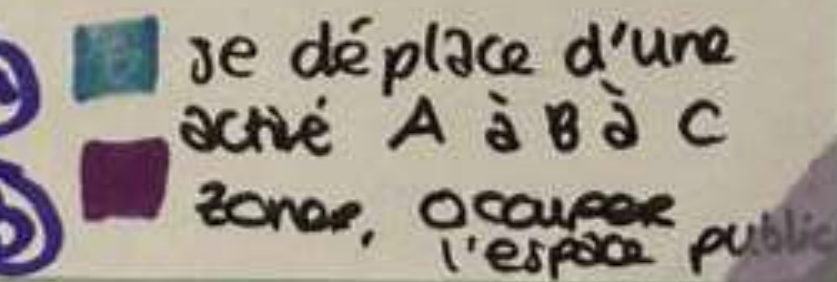 se déplace d'une
activé A à B à C
zoner, occuper
l'espace public